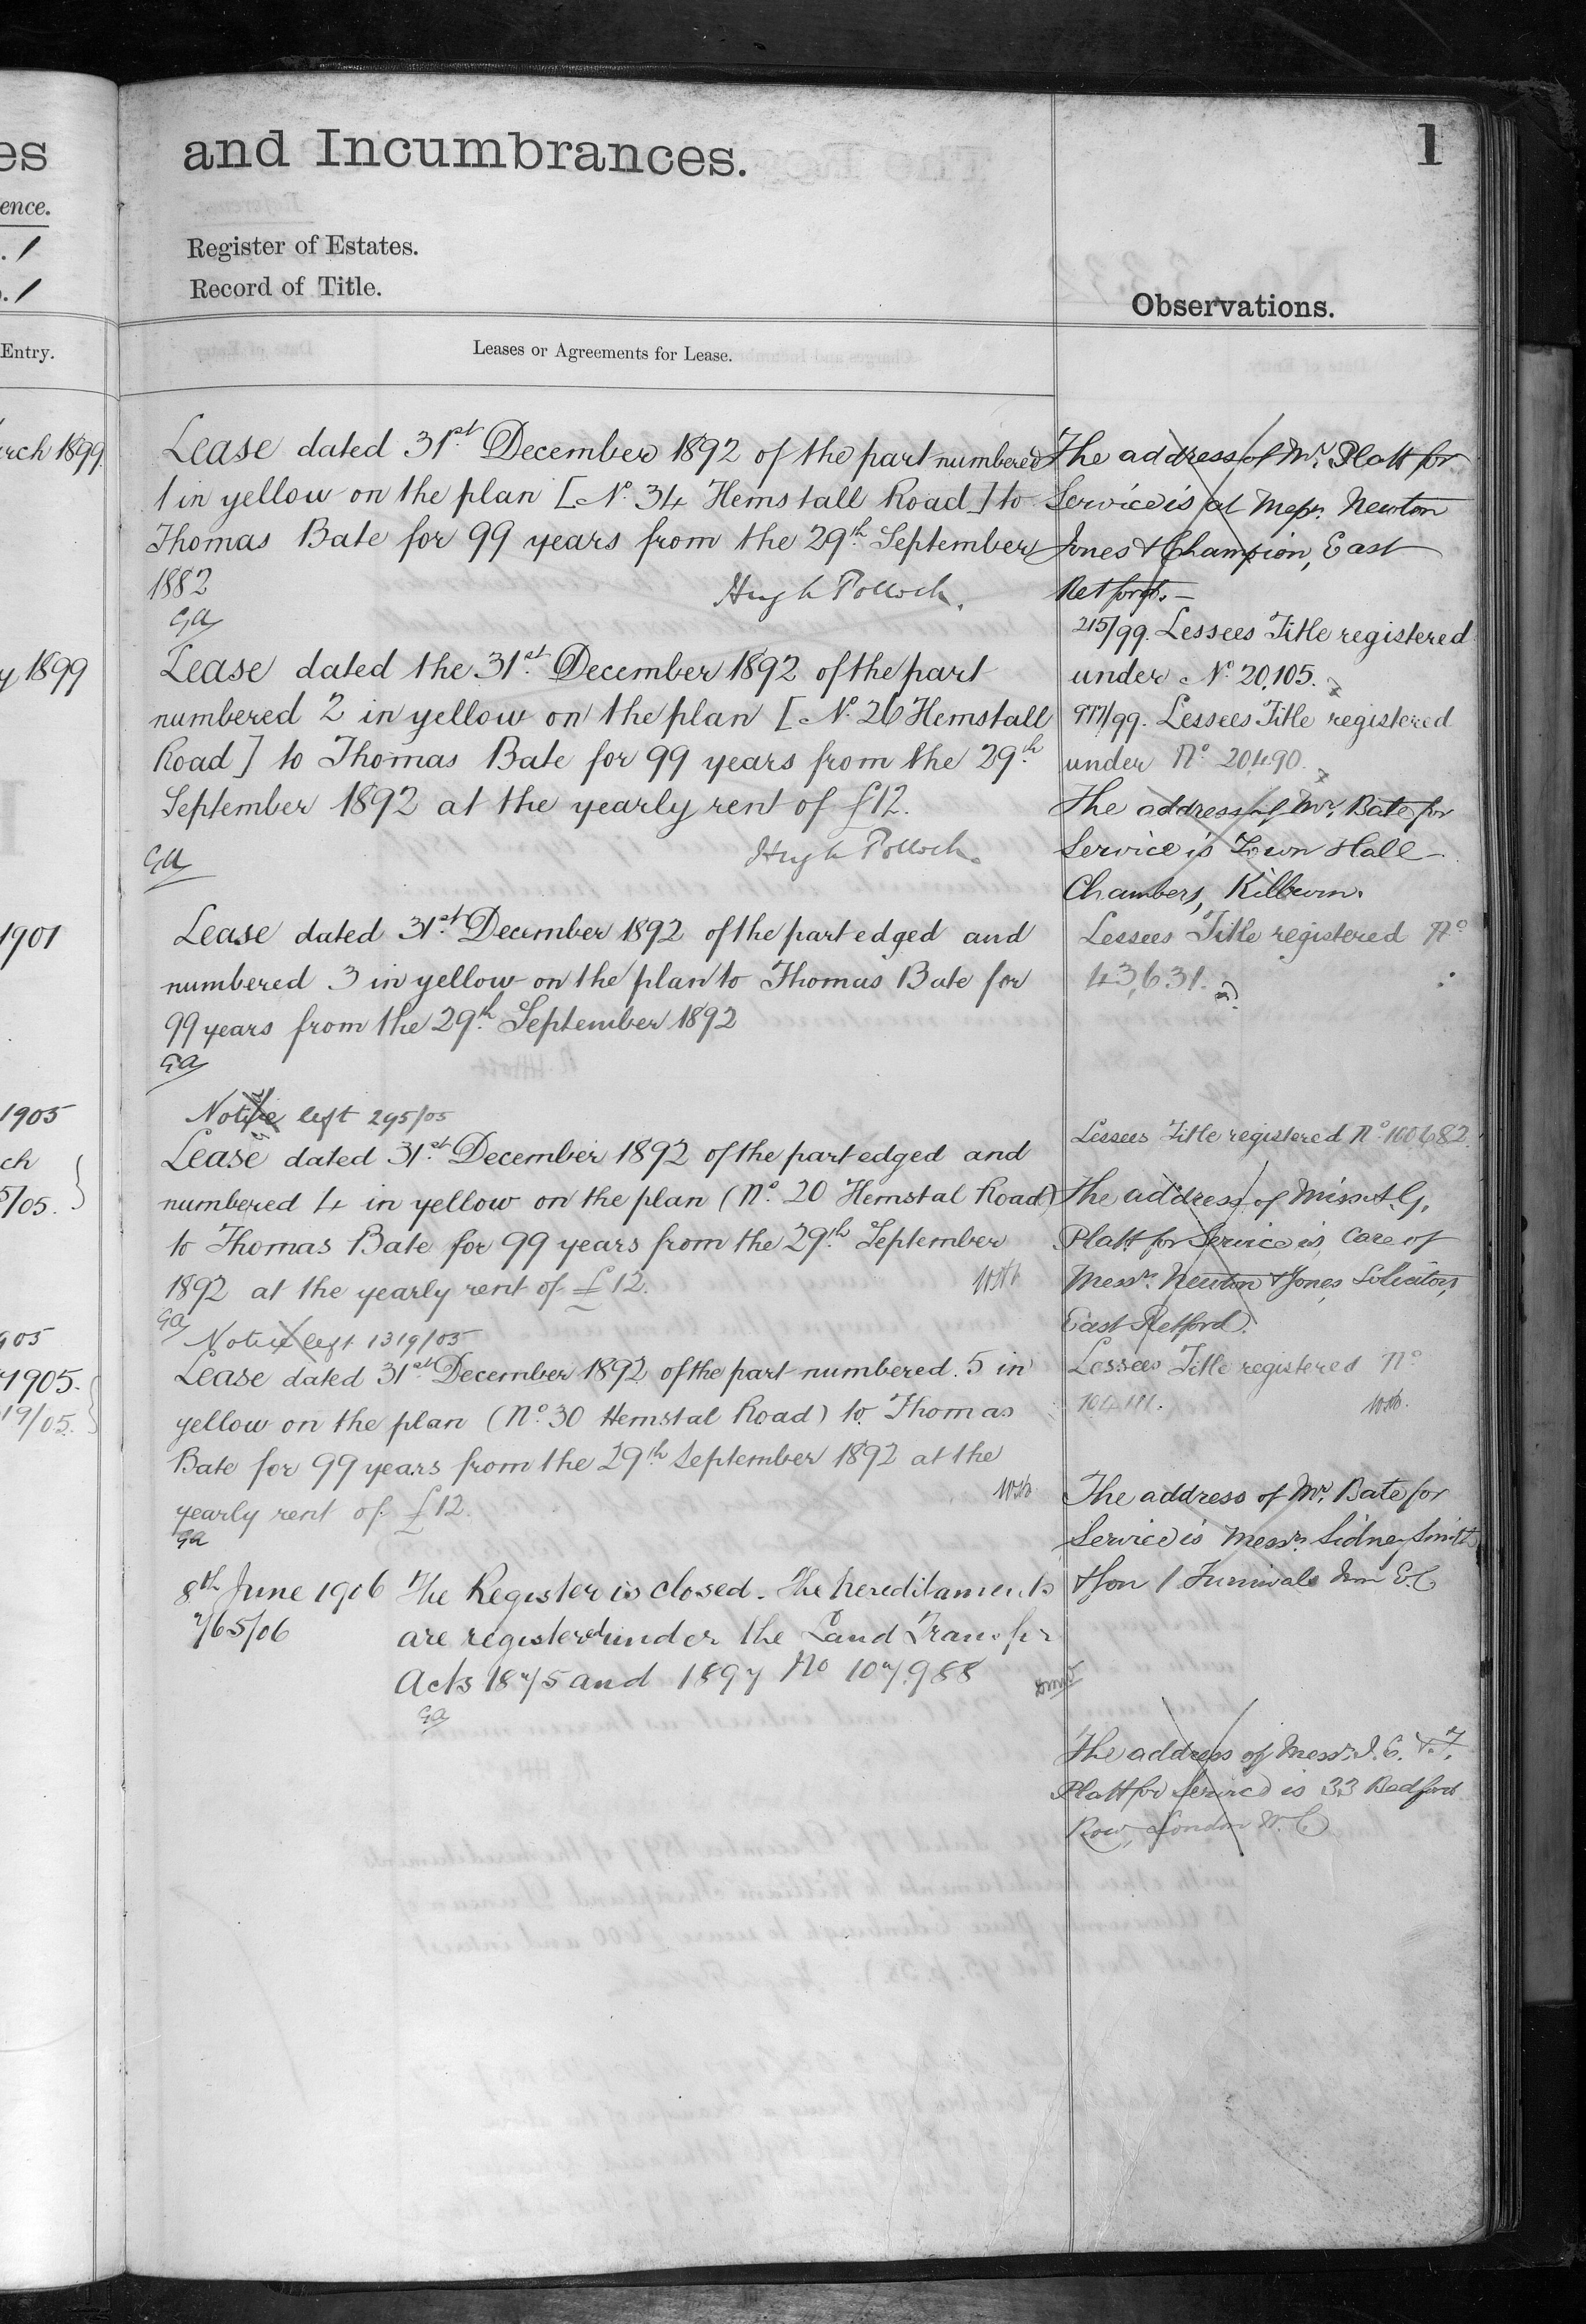 es
ence.
. 1
. 1
Entry.
rch 1899
y 1899
1901
1905
ch
5/05.
905
1905.
19/05.
and Incumbrances.
1
Register of Estates.
Record of Title.
Observations.
Leases or Agreements for Lease.
Lease dated 31st December 1892 of the part numbered
1 in yellow on the plan [No. 34 Hemstall Road] to
Thomas Bate for 99 years from the 29th September
1882
Hugh Pollock.
GA
Lease dated the 31st December 1892 of the part
numbered 2 in yellow on the plan [No. 26 Hemstall
Road] to Thomas Bate for 99 years from the 29th
September 1892 at the yearly rent of £12.
Hugh Pollock.
GA
Lease dated 31st December 1892 of the part edged and
numbered 3 in yellow on the plan to Thomas Bate for
99 years from the 29th September 1892
GA
Notice left 295/05
Lease dated 31st December 1892 of the part edged and
numbered 4 in yellow on the plan (No. 20 Hemstal Road)
to Thomas Bate for 99 years from the 29th September
1892 at the yearly rent of £12.
GA
Notice left 1319/05
Lease dated 31st December 1892 of the part numbered 5 in
yellow on the plan (No. 30 Hemstal Road) to Thomas
Bate for 99 years from the 29th September 1892 at the
yearly rent of £12.
GA
8th June 1906 The Register is closed. The hereditaments
765/06 are registered under the Land Transfer
Acts 1875 and 1897 No 107,988
GA
The address of Mr. Platt for
Service is at Messrs. Newton
Jones & Champion, East
Retford. —
215/99. Lessees Title registered
under No. 20,105.
977/99. Lessees Title registered
under No. 20,490.
The address of Mr. Bate for
Service is Town Hall
Chambers, Kilburn.
Lessees Title registered No
43,631.
Lessees Title registered No. 100682
The address of Miss A. G.
Platt for Service is, Care of
Messrs. Newton & Jones Solicitors,
East Retford.
Lessees Title registered No
104111.
The address of Mr. Bate for
Service is Messrs. Sidney Smith
& Son 1 Furnivals Inn E.C
The address of Messrs. J. E. & F.
Platt for Service is 33 Bedford
Row, London W.C